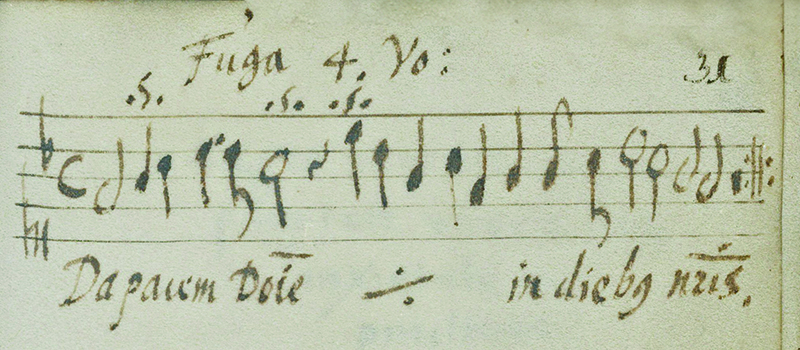 Fuga 4. Vo: 31
.s. .s. .s.
Da pacem Doīe ·/· in diebꝰ nr̄is.